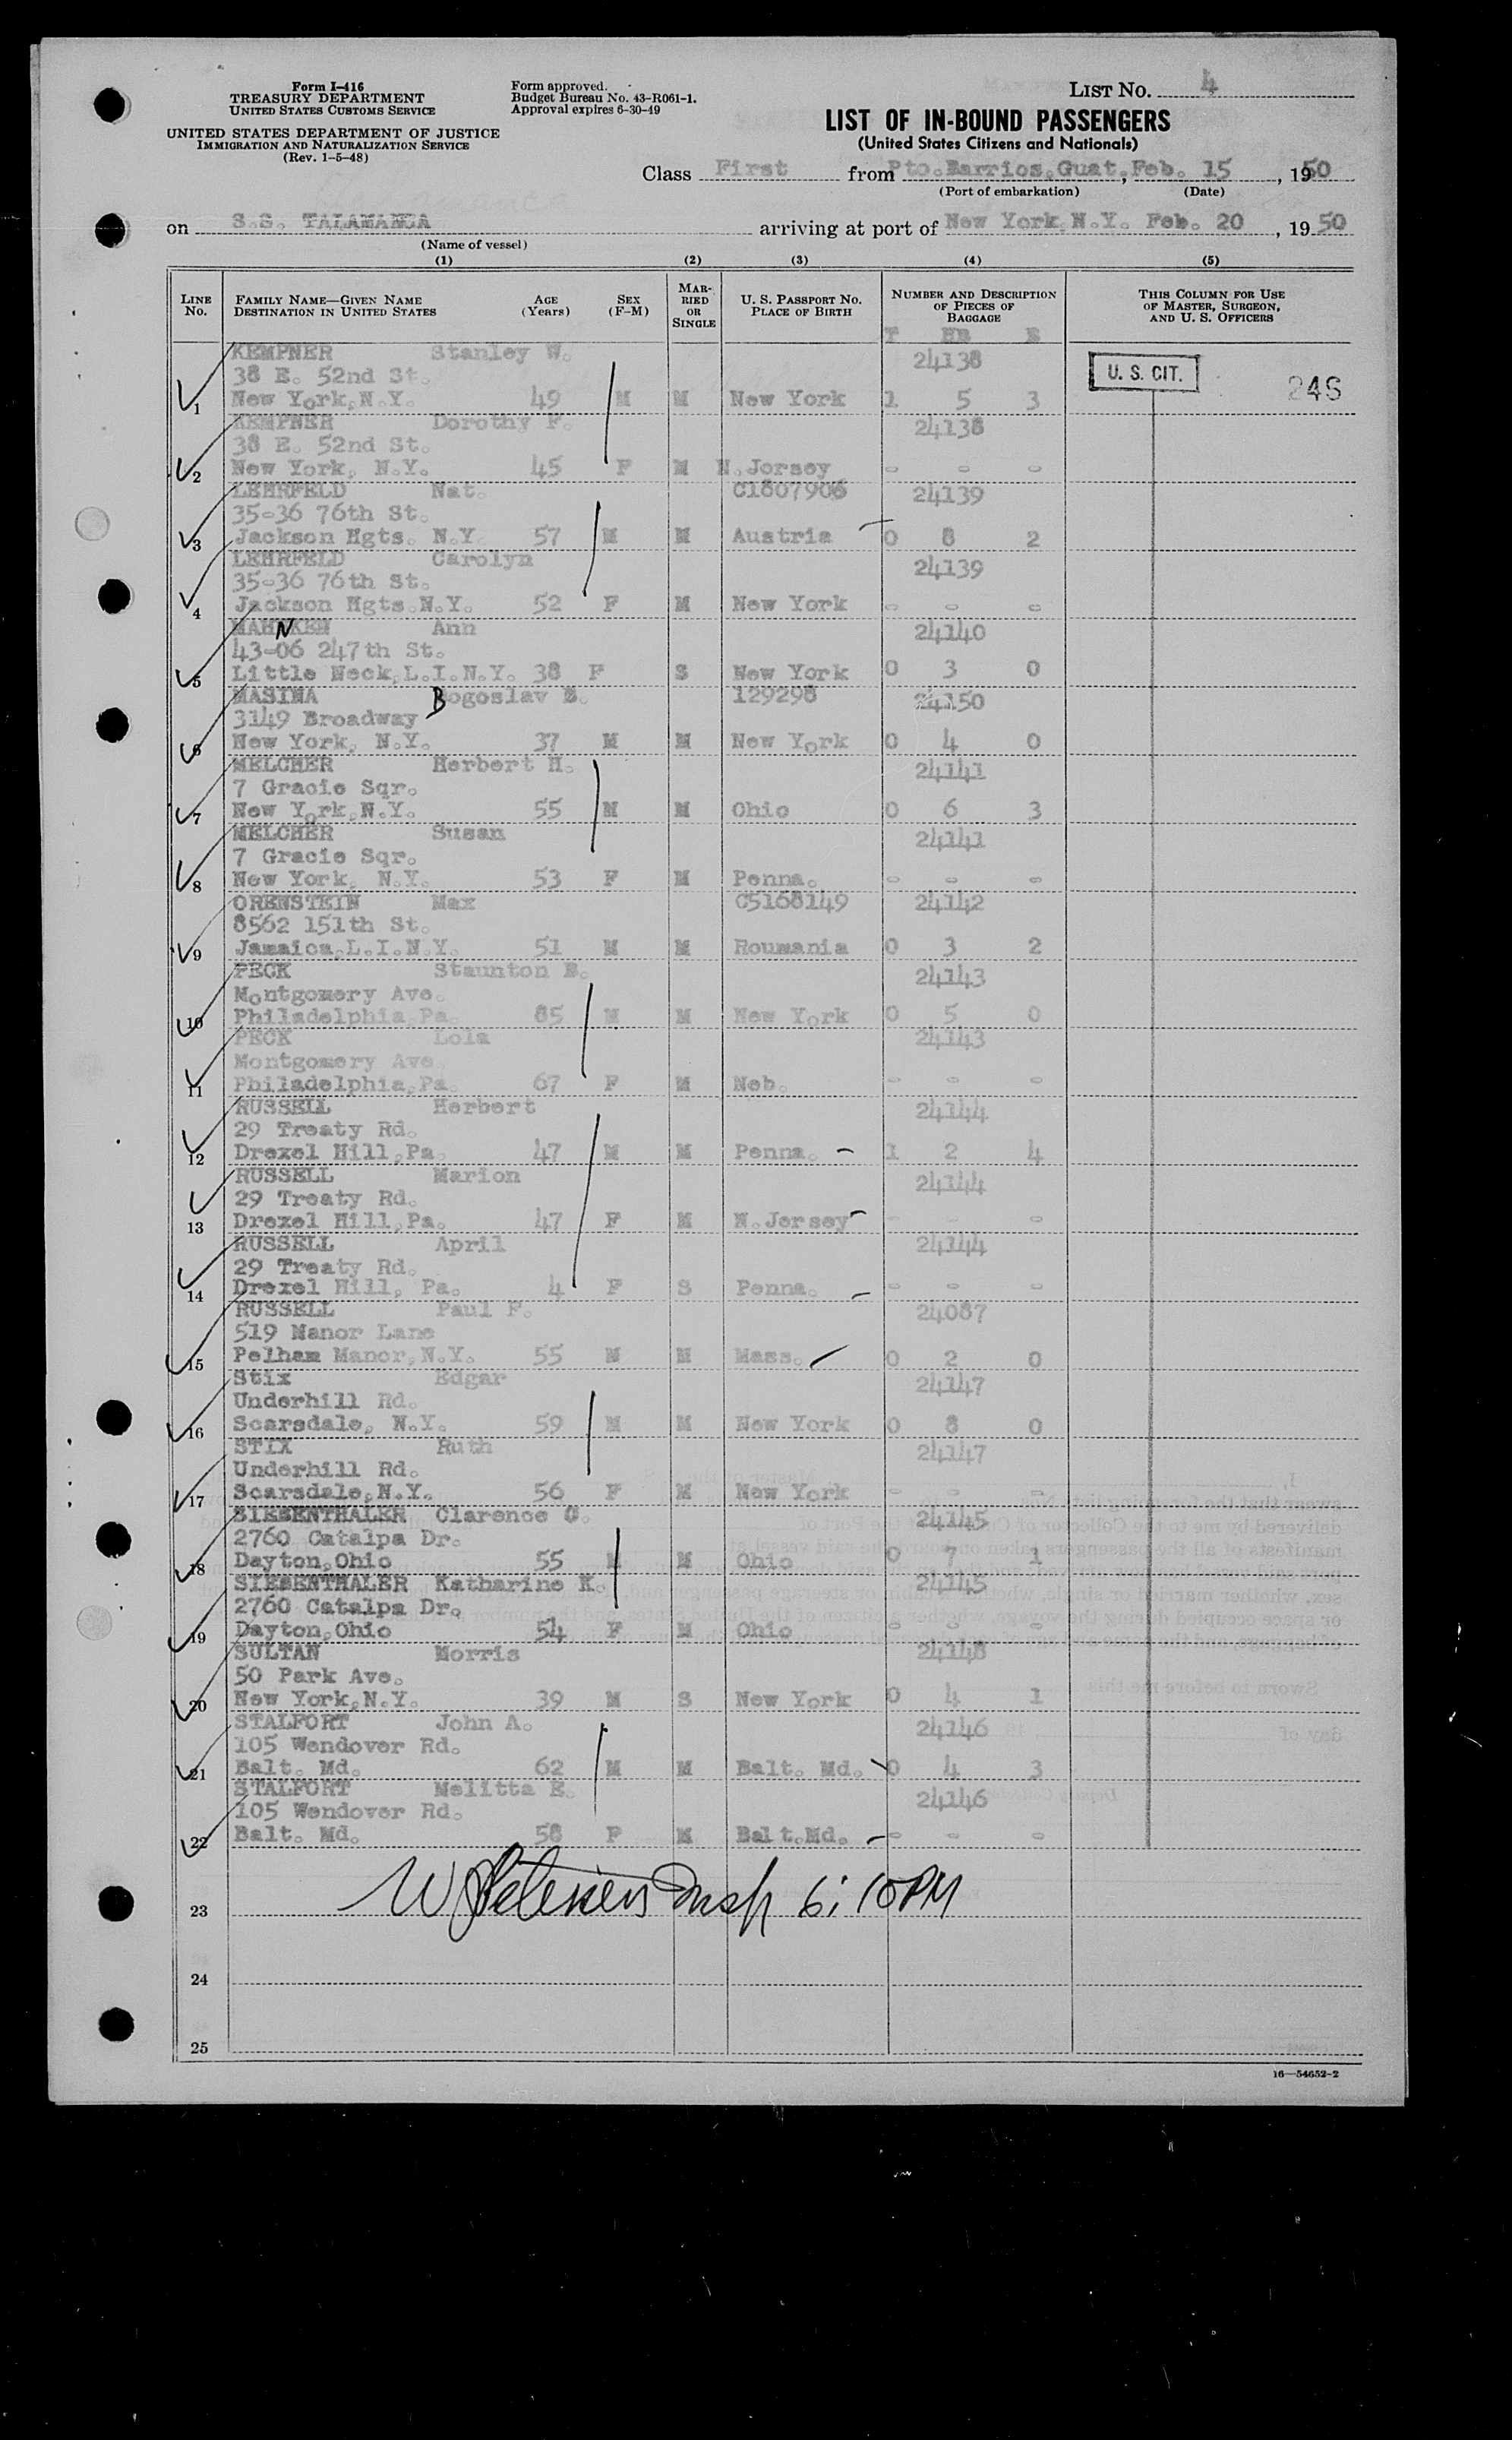 Form I-416
TREASURY DEPARTMENT
UNITED STATES CUSTOMS SERVICE
UNITED STATES DEPARTMENT OF JUSTICE
IMMIGRATION AND NATURALIZATION SERVICE
(Rev. 1-5-48)
Form approved.
Budget Bureau No. 43-R061-1.
Approval expires 6-30-49
LIST NO. 4
LIST OF IN-BOUND PASSENGERS
(United States Citizens and Nationals)
Class First from Pto.Barrios,Guat.,Feb. 15, 1950
(Port of embarkation) (Date)
on S.S. TALAMANCA arriving at port of New York,N.Y. Feb. 20, 1950
(Name of vessel)
(1) (2) (3) (4) (5)
LINE NO. FAMILY NAME—GIVEN NAME DESTINATION IN UNITED STATES AGE (Years) SEX (F-M) MARRIED OR SINGLE U. S. PASSPORT NO. PLACE OF BIRTH NUMBER AND DESCRIPTION OF PIECES OF BAGGAGE THIS COLUMN FOR USE OF MASTER, SURGEON, AND U. S. OFFICERS
T HB B
KEMPNER Stanley W. 24138 U. S. CIT.
38 E. 52nd St. 246
1 New York,N.Y. 49 M M New York 1 5 3
KEMPNER Dorothy F. 24138
38 E. 52nd St.
2 New York, N.Y. 45 F M N.Jersey - - -
LEHRFELD Nat. C1807906 24139
35-36 76th St.
3 Jackson Hgts. N.Y. 57 M M Austria 0 8 2
LEHRFELD Carolyn 24139
35-36 76th St.
4 Jackson Hgts.N.Y. 52 F M New York - - -
MAHNKEN Ann 24140
43-06 247th St.
5 Little Neck,L.I.N.Y. 38 F S New York 0 3 0
MASINA Bogoslav B. 129298 24150
3149 Broadway
6 New York, N.Y. 37 M M New York 0 4 0
MELCHER Herbert H. 24141
7 Gracie Sqr.
7 New York,N.Y. 55 M M Ohio 0 6 3
MELCHER Susan 24141
7 Gracie Sqr.
8 New York, N.Y. 53 F M Penna. - - -
ORENSTEIN Max C5168149 24142
8562 151th St.
9 Jamaica,L.I.N.Y. 51 M M Roumania 0 3 2
PECK Staunton B. 24143
Montgomery Ave.
10 Philadelphia,Pa. 85 M M New York 0 5 0
PECK Lola 24143
Montgomery Ave
11 Philadelphia,Pa. 67 F M Neb. - - -
RUSSELL Herbert 24144
29 Treaty Rd.
12 Drexel Hill,Pa. 47 M M Penna. 1 2 4
RUSSELL Marion 24144
29 Treaty Rd.
13 Drexel Hill,Pa. 47 F M N.Jersey - - -
RUSSELL April 24144
29 Treaty Rd.
14 Drexel Hill, Pa. 4 F S Penna. - - -
RUSSELL Paul F. 24087
519 Manor Lane
15 Pelham Manor,N.Y. 55 M M Mass. 0 2 0
Stix Edgar 24147
Underhill Rd.
16 Scarsdale, N.Y. 59 M M New York 0 8 0
STIX Ruth 24147
Underhill Rd.
17 Scarsdale,N.Y. 56 F M New York - - -
SIEBENTHALER Clarence C. 24145
2760 Catalpa Dr.
18 Dayton,Ohio 55 M M Ohio 0 7 1
SIEBENTHALER Katharine K. 24145
2760 Catalpa Dr.
19 Dayton,Ohio 54 F M Ohio - - -
SULTAN Morris 24148
50 Park Ave.
20 New York,N.Y. 39 M S New York 0 4 1
STALFORT John A. 24146
105 Wendover Rd.
21 Balt. Md. 62 M M Balt. Md. 0 4 3
STALFORT Melitta E. 24146
105 Wendover Rd.
22 Balt. Md. 58 F M Balt.Md. - - -
23 Insp 6:10PM
24
25
16—54652-2